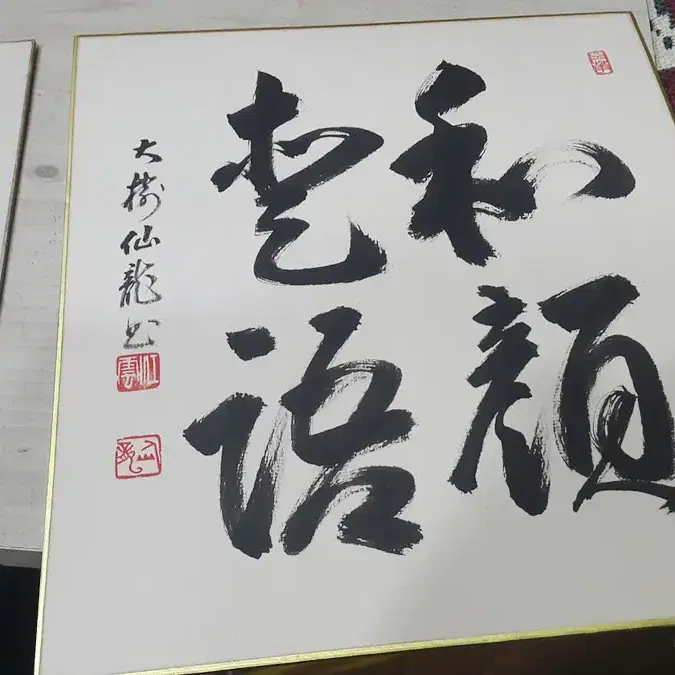 和顔
愛語
大樹仙龍書